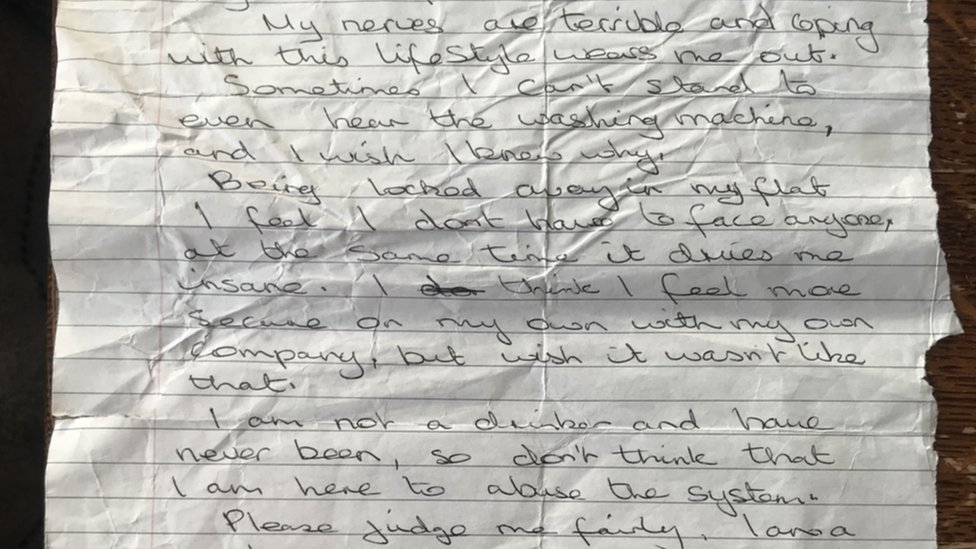 My nerves are terrible and coping
with this lifestyle wears me out.
Sometimes I can't stand to
even hear the washing machine,
and I wish I knew why.
Being locked away in my flat
I feel I don't have to face anyone,
at the same time it drives me
insane. I think I feel more
secure on my own with my own
company, but wish it wasn't like
that.
I am not a drinker and have
never been, so don't think that
I am here to abuse the system.
Please judge me fairly. I am a